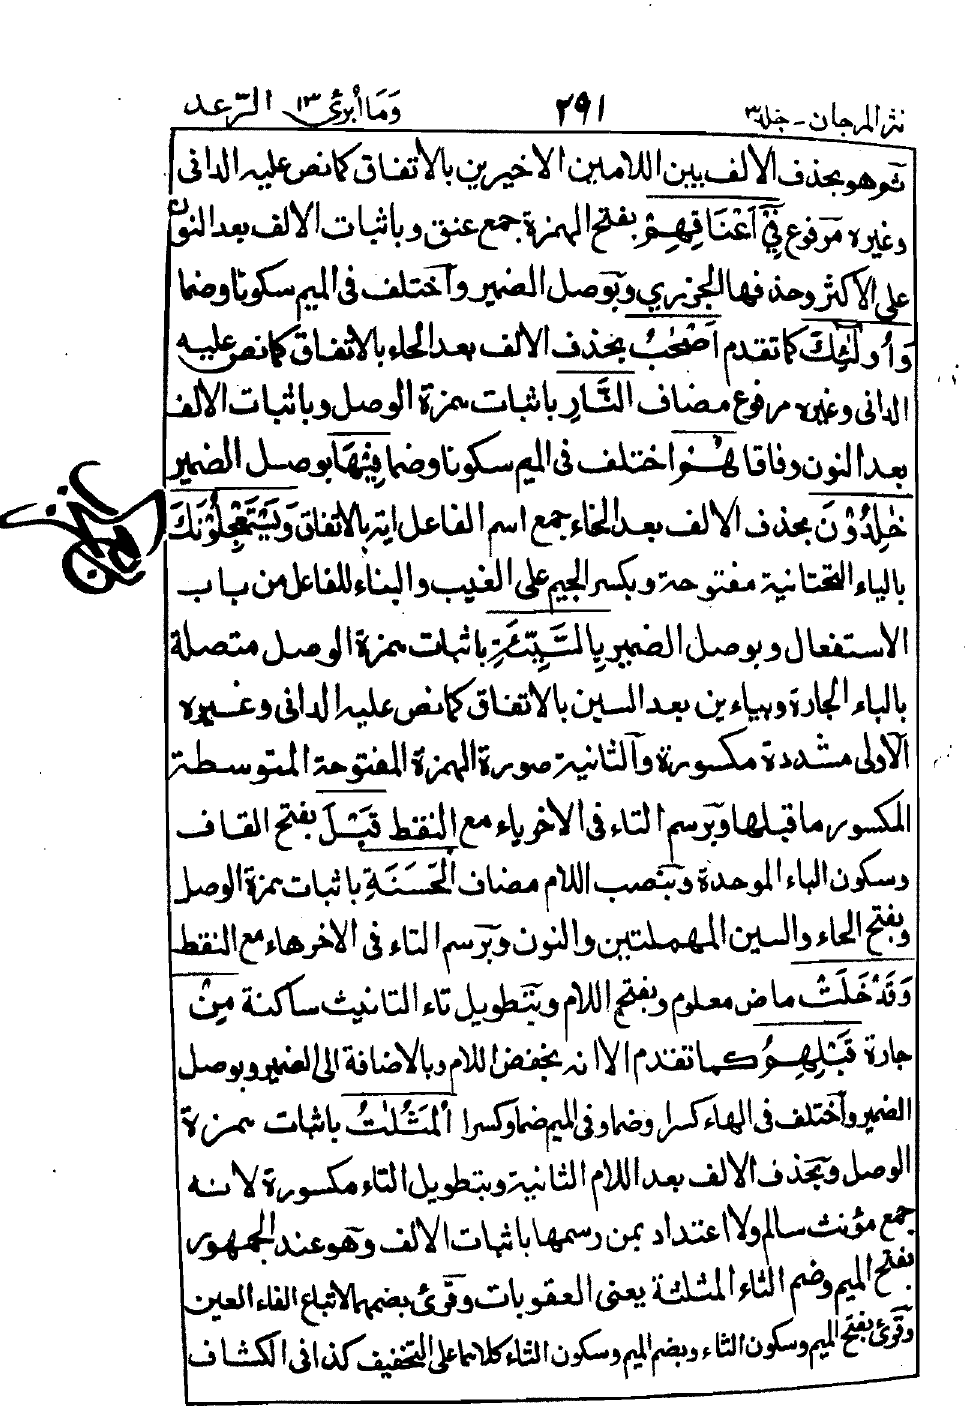 نثر المرجان - جلد ٣
٢٩١
وَمَا أبرئ ١٣ الرّعد
ثو وهو بحذف الالف بين اللامين الاخيرين بالاتفاق كما نص عليه الدانى
وغيره مرفوع فِيْٓ اَعْنَاقِهِمْ بفتح الهمزة جمع عنق وباثبات الالف بعد النون
على الاكثر وحذفها الجزري وبوصل الضمير واختلف فى الميم سكونا وضما
وَاُولٰٓئِكَ كما تقدم اَصْحٰبُ بحذف الالف بعد الحاء بالاتفاق كما نص عليه
الدانى وغيره مرفوع مضاف النَّارِ باثبات همزة الوصل وباثبات الالف
بعد النون وفاقا هُمْ اختلف فى الميم سكونا وضما فِيْهَا بوصل الضمير
خٰلِدُوْنَ بحذف الالف بعد الخاء جمع اسم الفاعل اية بالاتفاق وَيَسْتَعْجِلُوْنَكَ
بالياء التحتانية مفتوحة وبكسر الجيم على الغيب والبناء للفاعل من باب
الاستفعال وبوصل الضمير بِالسَّيِّئَةِ باثبات همزة الوصل متصلة
بالباء الجارة وبياءين بعد السين بالاتفاق كما نص عليه الدانى وغيره
الاولى مشددة مكسورة والثانية صورة الهمزة المفتوحة المتوسطة
المكسور ما قبلها وبرسم التاء فى الاخر ياء مع النقط قَبْلَ بفتح القاف
وسكون الباء الموحدة وبنصب اللام مضاف الْحَسَنَةِ باثبات همزة الوصل
وبفتح الحاء والسين المهملتين والنون وبرسم التاء فى الاخر هاء مع النقط
وَقَدْ خَلَتْ ماض معلوم وبفتح اللام وبتطويل تاء التانيث ساكنة مِنْ
جارة قَبْلِهِمُ كما تقدم الا انه بخفض اللام وبالاضافة الى الضمير وبوصل
الضمير واختلف فى الهاء كسرا وضما وفى الميم ضما وكسرا الْمَثُلٰتُ باثبات همزة
الوصل وبحذف الالف بعد اللام الثانية وبتطويل التاء مكسورة لانه
جمع مؤنث سالم ولا اعتداد بمن رسمها باثبات الالف وهو عند الجمهور
بفتح الميم وضم الثاء المثلثة يعنى العقوبات وقرئ بضمهما لاتباع الفاء العين
وقرئ بفتح الميم وسكون الثاء وبضم الميم وسكون الثاء كلاهما على التخفيف كذا فى الكشاف